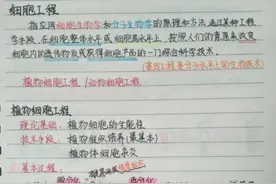 细胞工程
指应用细胞生物学和分子生物学的原理和方法,通过某种工程
学手段,在细胞整体水平或细胞器水平上,按照人们的意愿来改变
细胞内的遗传物质或获得细胞产品的一门综合科学技术。
(基因工程是分子水平上的生物技术)
植物细胞工程/动物细胞工程
植物细胞工程
理论基础:植物细胞的全能性
技术手段:植物组织培养(最基本)
植物体细胞杂交
基本过程: